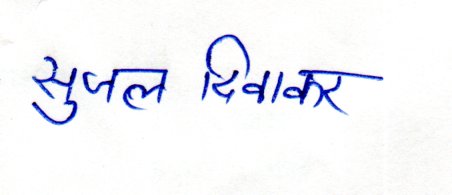 सुजल दिवाकर